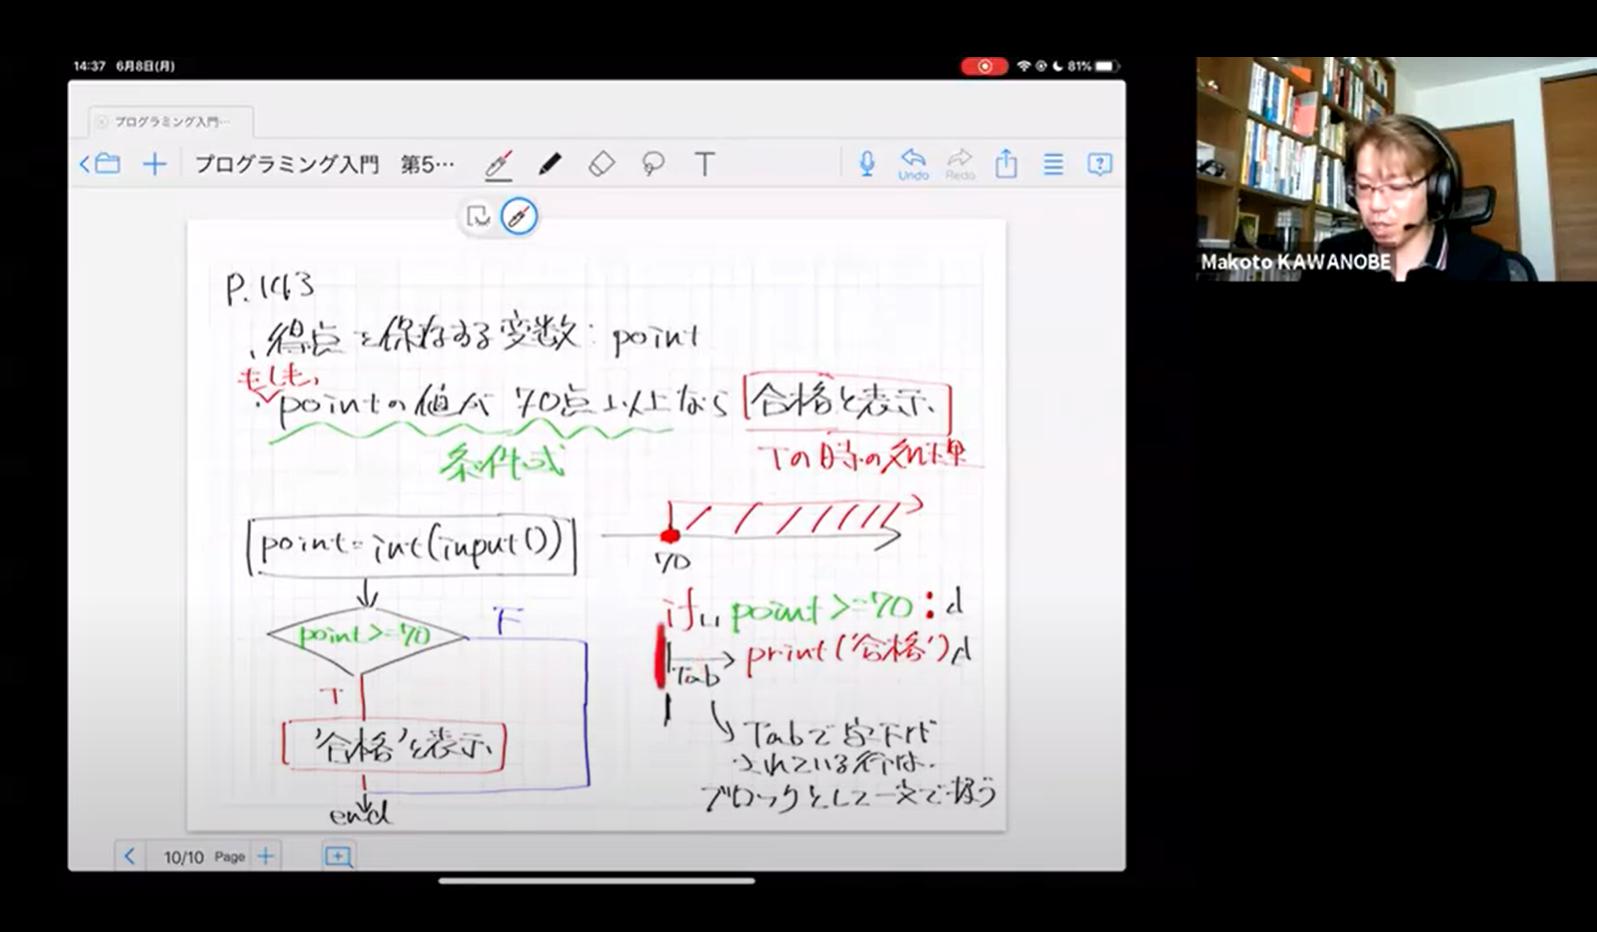 14:37 6月8日(月)
81%
プログラミング入門…
プログラミング入門 第5…
T
Undo
Redo
P.143
・得点を保存する変数：point
もしも、
・pointの値が 70点以上なら 合格と表示、
条件式
Tの時の処理
point=int(input())
70
point>=70
F
T
'合格'を表示、
end
if␣point>=70:
print('合格')
Tab
Tabで字下げ
されている行は、
ブロックとして一文で扱う
10/10 Page
Makoto KAWANOBE